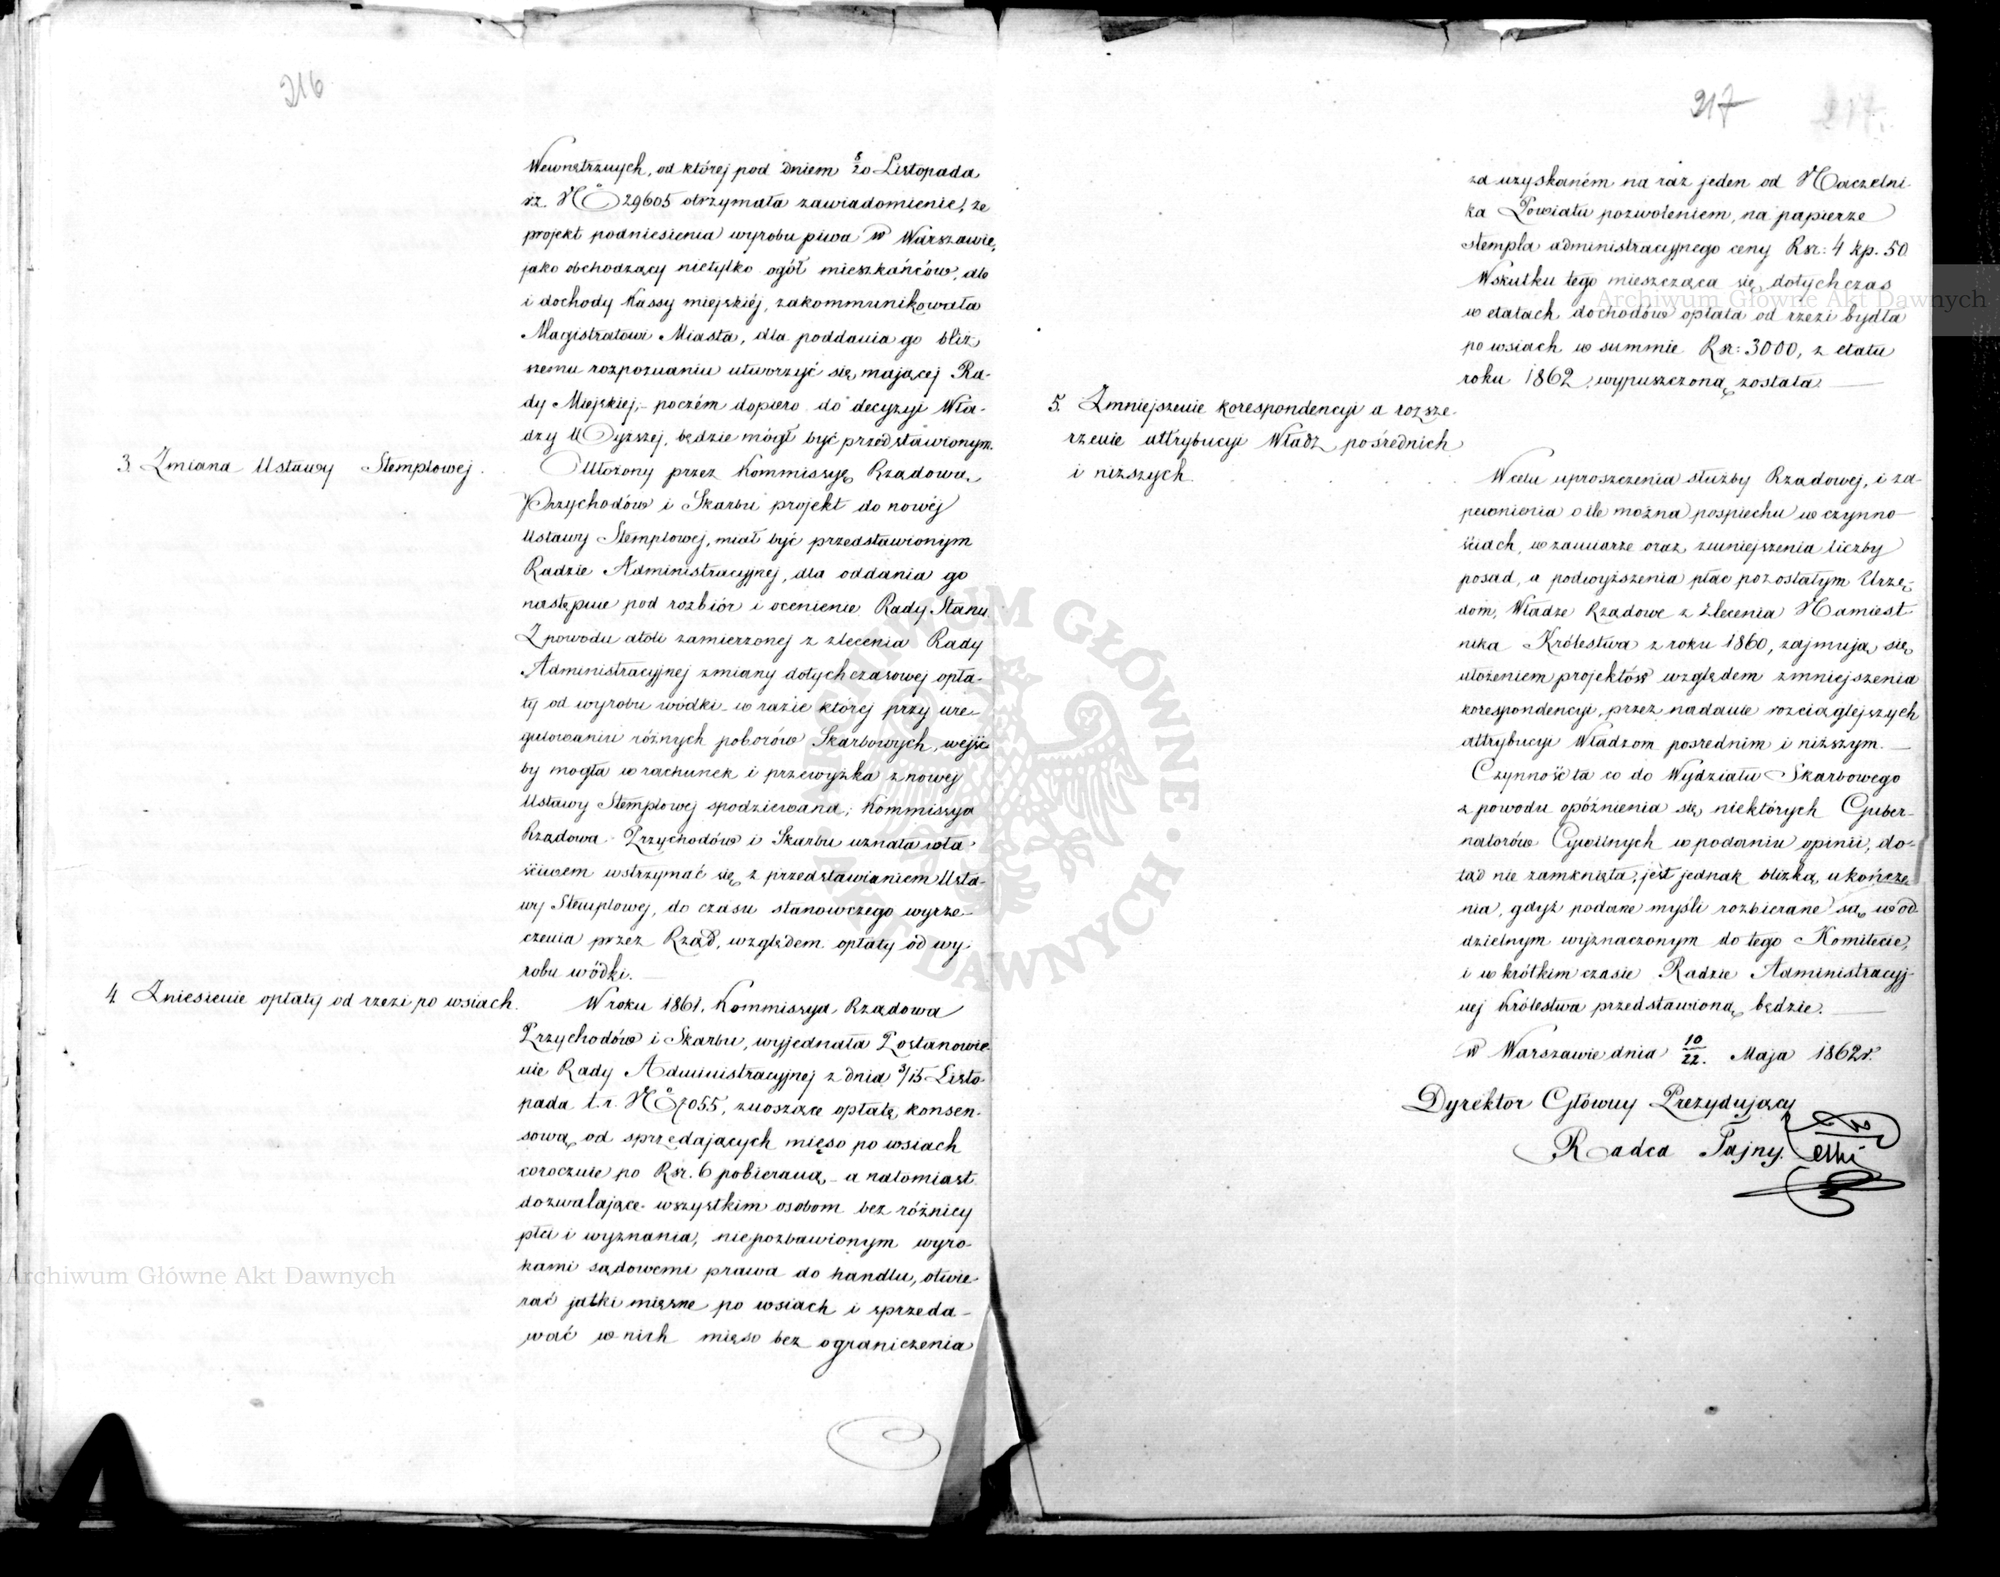 216
Wewnętrznych, od której pod dniem 8/20 Listopada
rz. No 29605 otrzymała zawiadomienie, że
projekt podniesienia wyrobu piwa w Warszawie,
jako obchodzący nietylko ogół mieszkańców, ale
i dochody Kassy miejskiéj, zakommunikowała
Magistratowi Miasta, dla poddania go bliż
szemu rozpoznaniu utworzyć się mającej Ra-
dy Miejskiej,- poczém dopiero do decyzyi Wła-
dzy Wyższej, będzie mógł być przedstawionym.
3. Zmiana Ustawy Stemplowej.
Ułożony przez Kommissyę Rządową
Przychodów i Skarbu projekt do nowéj
Ustawy Stemplowej, miał być przedstawionym
Radzie Administracyjnej, dla oddania go
następnie pod rozbiór i ocenienie Rady Stanu.
Z powodu atoli zamierzonej z zlecenia Rady
Administracyjnej zmiany dotychczasowej opła-
ty od wyrobu wódki - w razie której przy ure-
gulowaniu różnych poborów Skarbowych, wejść
by mogła w rachunek i przewyżka z nowej
Ustawy Stemplowej spodziewana; Kommissya
Rządowa Przychodów i Skarbu uznała wła
ściwem wstrzymać się z przedstawianiem Usta-
wy Stemplowej, do czasu stanowczego wyrze-
czenia przez Rząd, względem opłaty od wy
robu wódki. —
4. Zniesienie opłaty od rzezi po wsiach.
W roku 1861. Kommissya Rządowa
Przychodów i Skarbu, wyjednała Postanowie-
nie Rady Administracyjnej z dnia 3/15 Listo-
pada t.r. No 7055, znoszące opłatę konsen-
sową od sprzedających mięso po wsiach
corocznie po Rsr. 6 pobieraną - a natomiast
dozwalające wszystkim osobom bez różnicy
płci i wyznania, niepozbawionym wyro-
kami sądowemi prawa do handlu, otwie
rać jatki mięsne po wsiach i sprzeda-
wać w nich mięso bez ograniczenia
217
za uzyskaném na raz jeden od Naczelni-
ka Powiatu pozwoleniem, na papierze
stempla administracyjnego ceny Rsr: 4 kp. 50.
Wskutku tego mieszcząca się dotychczas
w etatach dochodów opłata od rzezi bydła
po wsiach w summie Rsr: 3000, z etatu
roku 1862 wypuszczoną została —
5. Zmniejszenie korespondencyi a rozsze-
rzenie attrybucyi Władz pośrednich
i niższych.
W celu uproszczenia służby Rządowej, i za-
pewnienia o ile można pospiechu w czynno-
ściach, w zamiarze oraz zmniejszenia liczby
posad, a podwyższenia płac pozostałym Urzę-
dom, Władze Rządowe z zlecenia Namiest
nika Królestwa z roku 1860, zajmują się
ułożeniem projektów względem zmniejszenia
korespondencyi, przez nadanie rozciąglejszych
attrybucyi Władzom pośrednim i niższym. —
Czynność ta co do Wydziału Skarbowego
z powodu opóźnienia się niektórych Guber-
natorów Cywilnych w podaniu opinii, do-
tąd nie zamknięta, jest jednak blizką ukończe
nia, gdyż podane myśli rozbierane są w od
dzielnym wyznaczonym do tego Komitecie,
i w krótkim czasie Radzie Administracyj-
nej Królestwa przedstawioną będzie. —
w Warszawie dnia 10/22. Maja 1862 r.
Dyrektor Główny Prezydujący
Radca Tajny.
Archiwum Główne Akt Dawnych
Archiwum Główne Akt Dawnych
ARCHIWUM GŁÓWNE AKT DAWNYCH